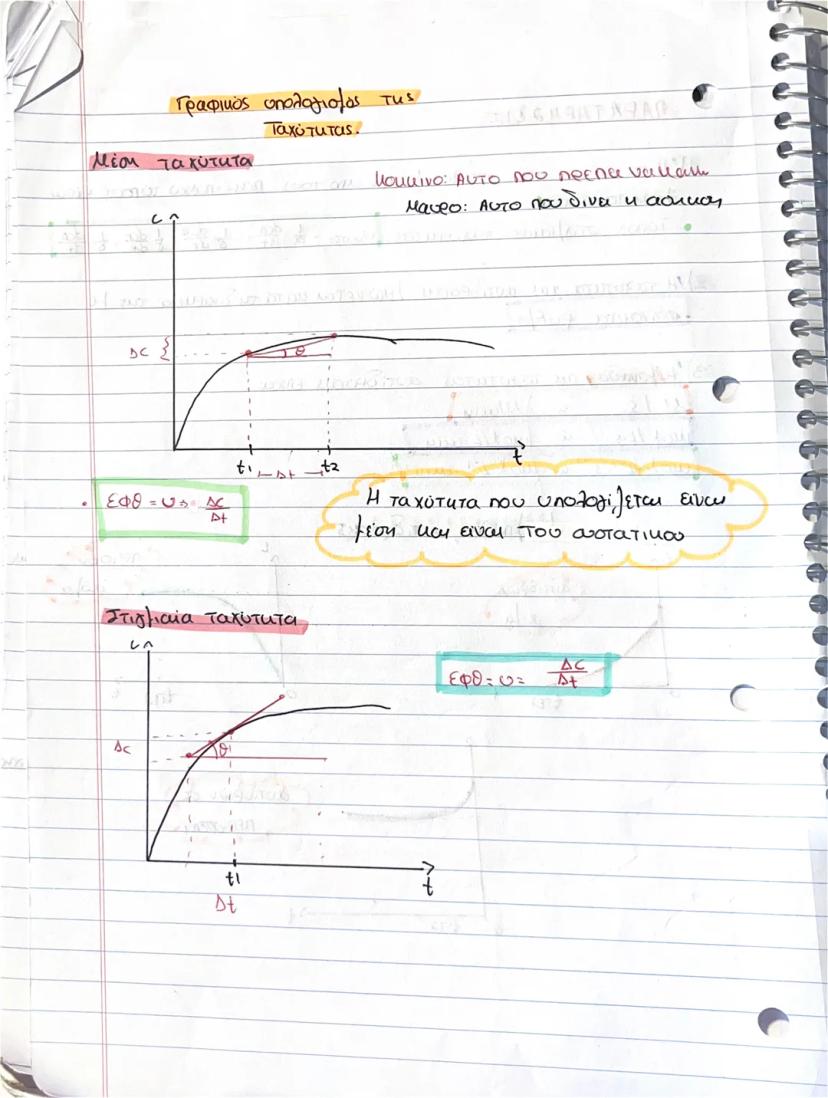 Γραφικός υπολογισμός της
Ταχύτητας.
Μέση ταχύτητα
Κοκκινο: Αυτο που πρεπει να κανω
Μαυρο: Αυτο που δινει η ασκηση
C
ΔC
θ
t1
Δt
t2
t
εφθ = υ => ΔC/Δt
Η ταχύτητα που υπολογίζεται ειναι
μέση και ειναι του συστατικου
Στιγμιαία ταχύτητα
C
εφθ = υ = ΔC/Δt
Δc
θ
t1
t
Δt